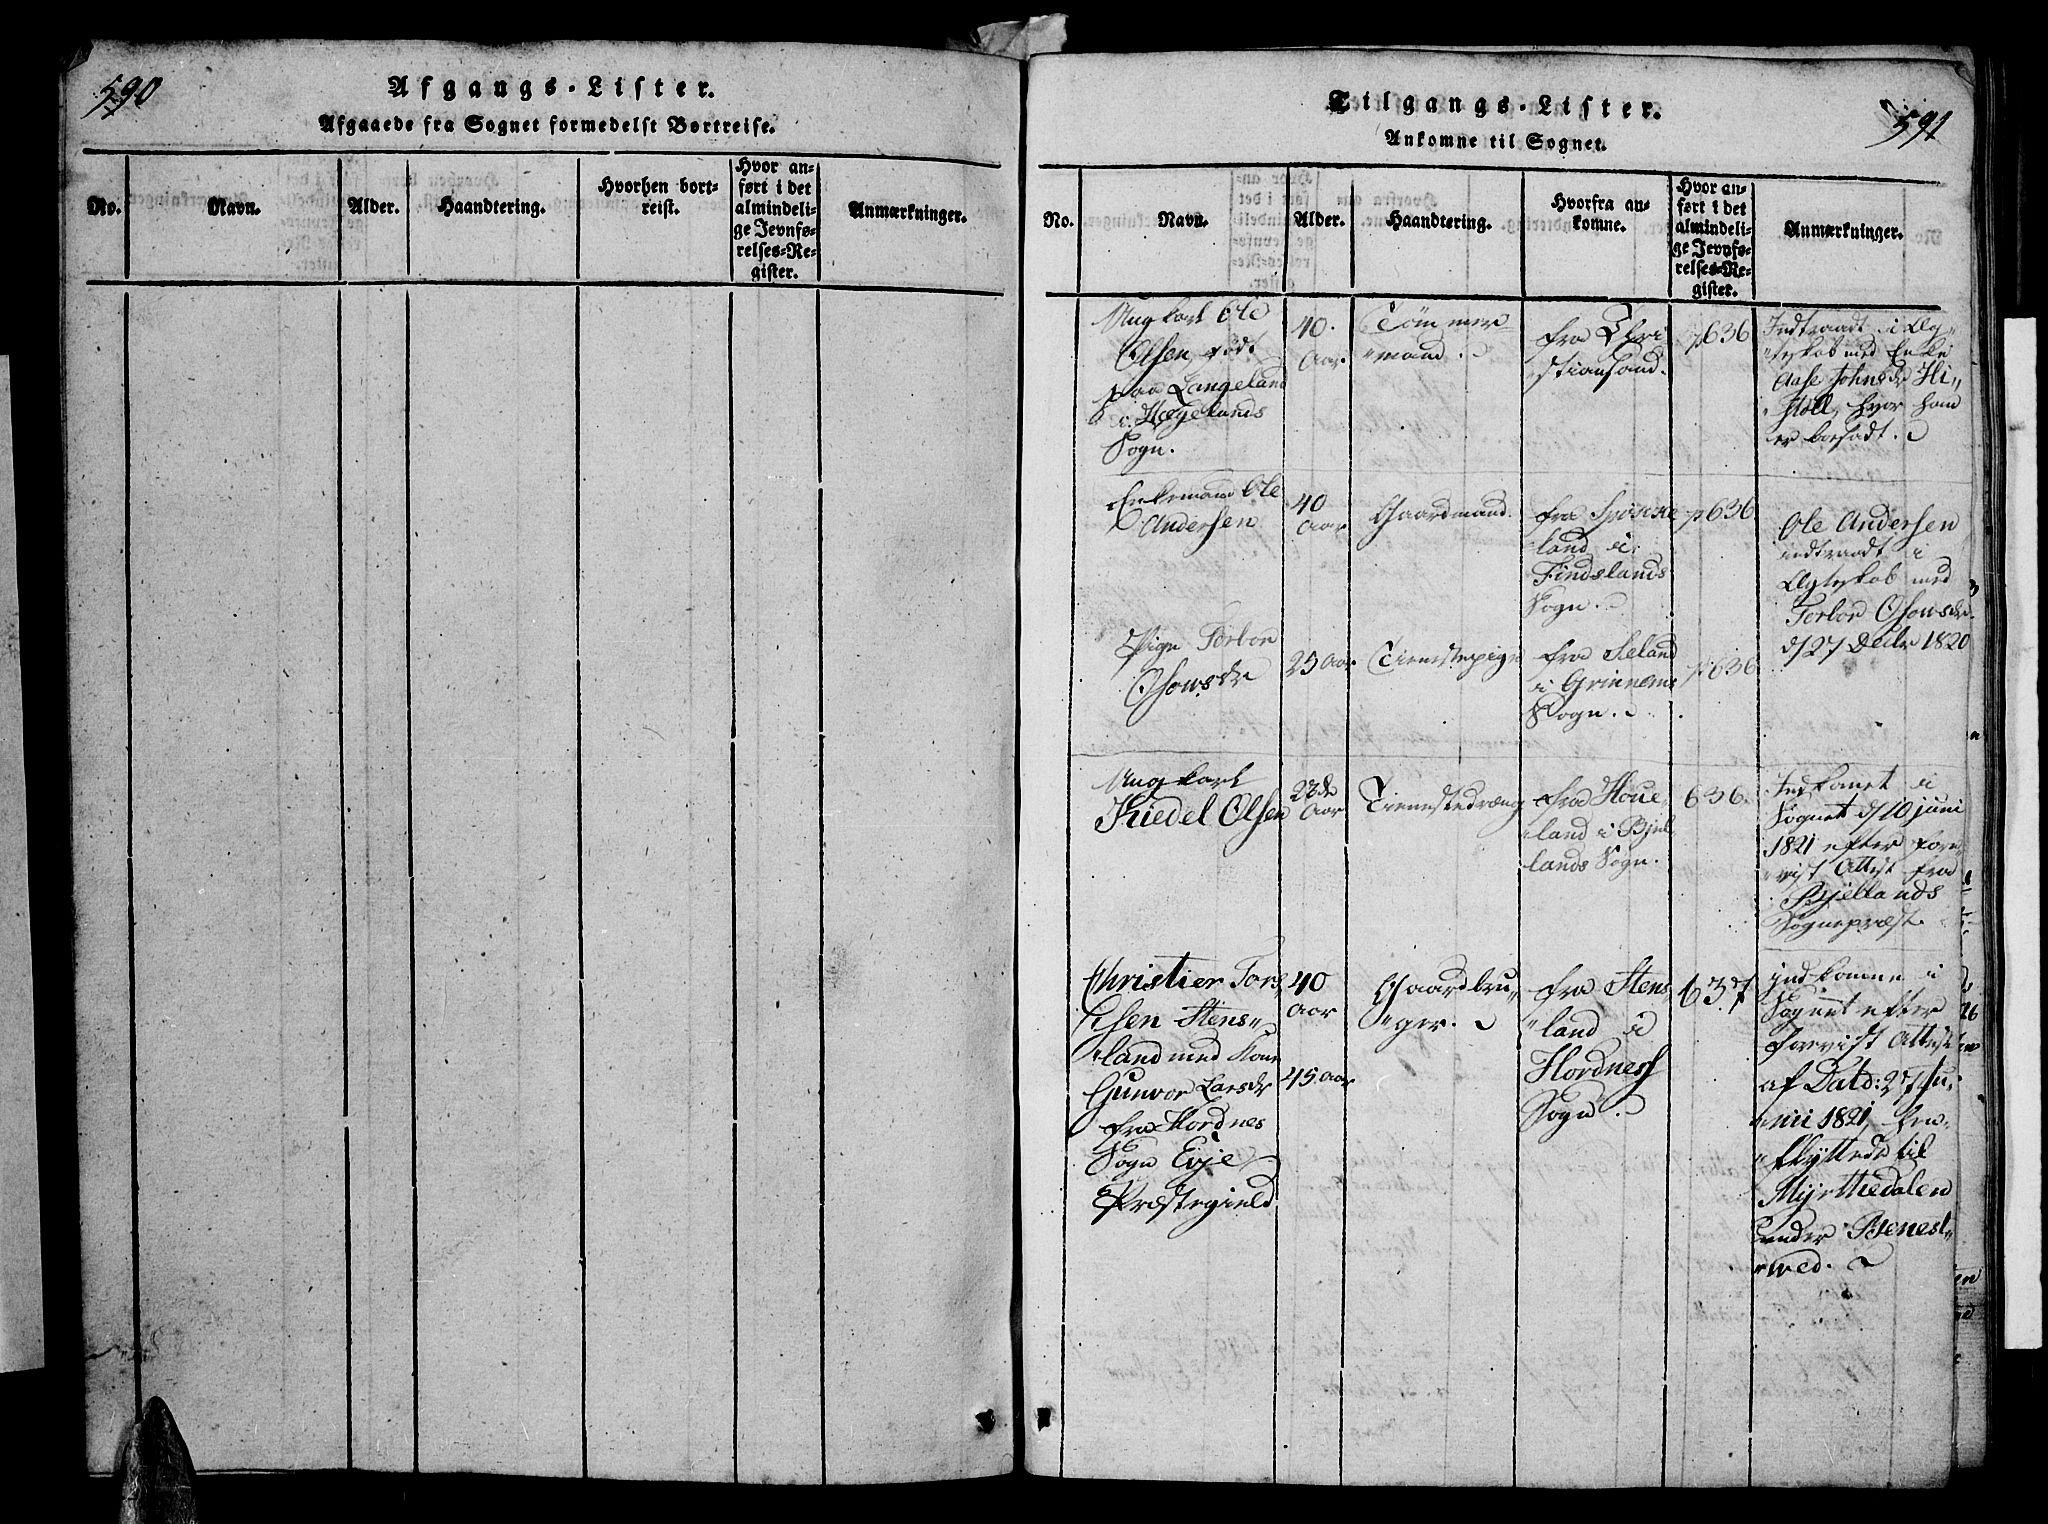 590
Afgangs-Lister.
Afgaaede fra Sognet formedelst Bortreise.
No.
Navn.
Alder.
Haandtering.
Hvorhen bort-
reist.
Hvor an-
ført i det
almindeli-
ge Jevnfø-
relses-Re-
gister.
Anmærkninger.
591
Tilgangs-Lister.
Ankomne til Sognet.
No.
Navn.
Alder.
Haandtering.
Hvorfra an-
komne.
Hvor an-
ført i det
almindeli-
ge Jevnfø-
relses-Re-
gister.
Anmærkninger.
Ungkarl Ole
Olsen, født
paa Langeland
i Hægelands
Sogn.
40.
Aar.
Tömmer-
mand.
fra Chri
stiansand.
p636
Indtraadt i Æg-
teskab med Enke
Aase Johnsdr Hi-
støll, hvor han
er bosadt.
Enkemand Ole
Andersen
40
Aar
Gaardmand.
fra
land i
Findslands
Sogn.
p636.
Ole Andersen
indtraadt i
Ægteskab med
Torbor Osowsdr
d/27 Decbr 1820
Pige Torbor
Osowsdr
25 Aar.
Tienestepige
fra Seland
i Grinnems
Sogn.
p636
Ungkarl
Kiedel Olsen
22de
Aar
Tienestedræng
fra Houe-
land i Bjel
lands Sogn.
636.
Indkomet i
Sognet d/10 juni
1821 efter fore
vist Attest fra
Bjellands
Sognepræst.
Christier Tors
Olsen Stens-
land med Kone
Gunvor Larsdr
fra Hordnes
Sogn Evje
Præstegield
40
Aar
45. Aar
Gaardbru-
ger.
fra Stens
land i
Hordness
Sogn.
637
indkomne i
Sognet efter
forevist Attest
af Datd: 27 Ju-
nii 1821, hen-
flyttede til
Myrthedalen
under Benest-
wed.